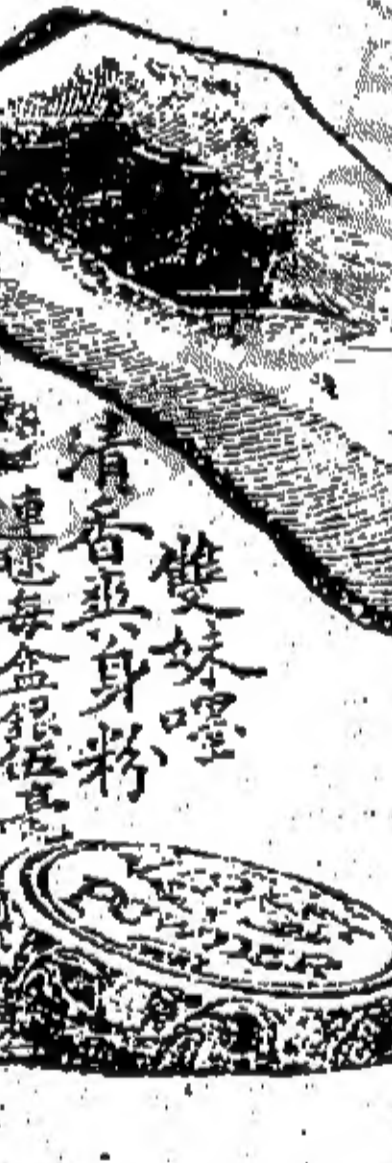 雙妹嚜
清香爽身粉
連興每盒銀伍毫